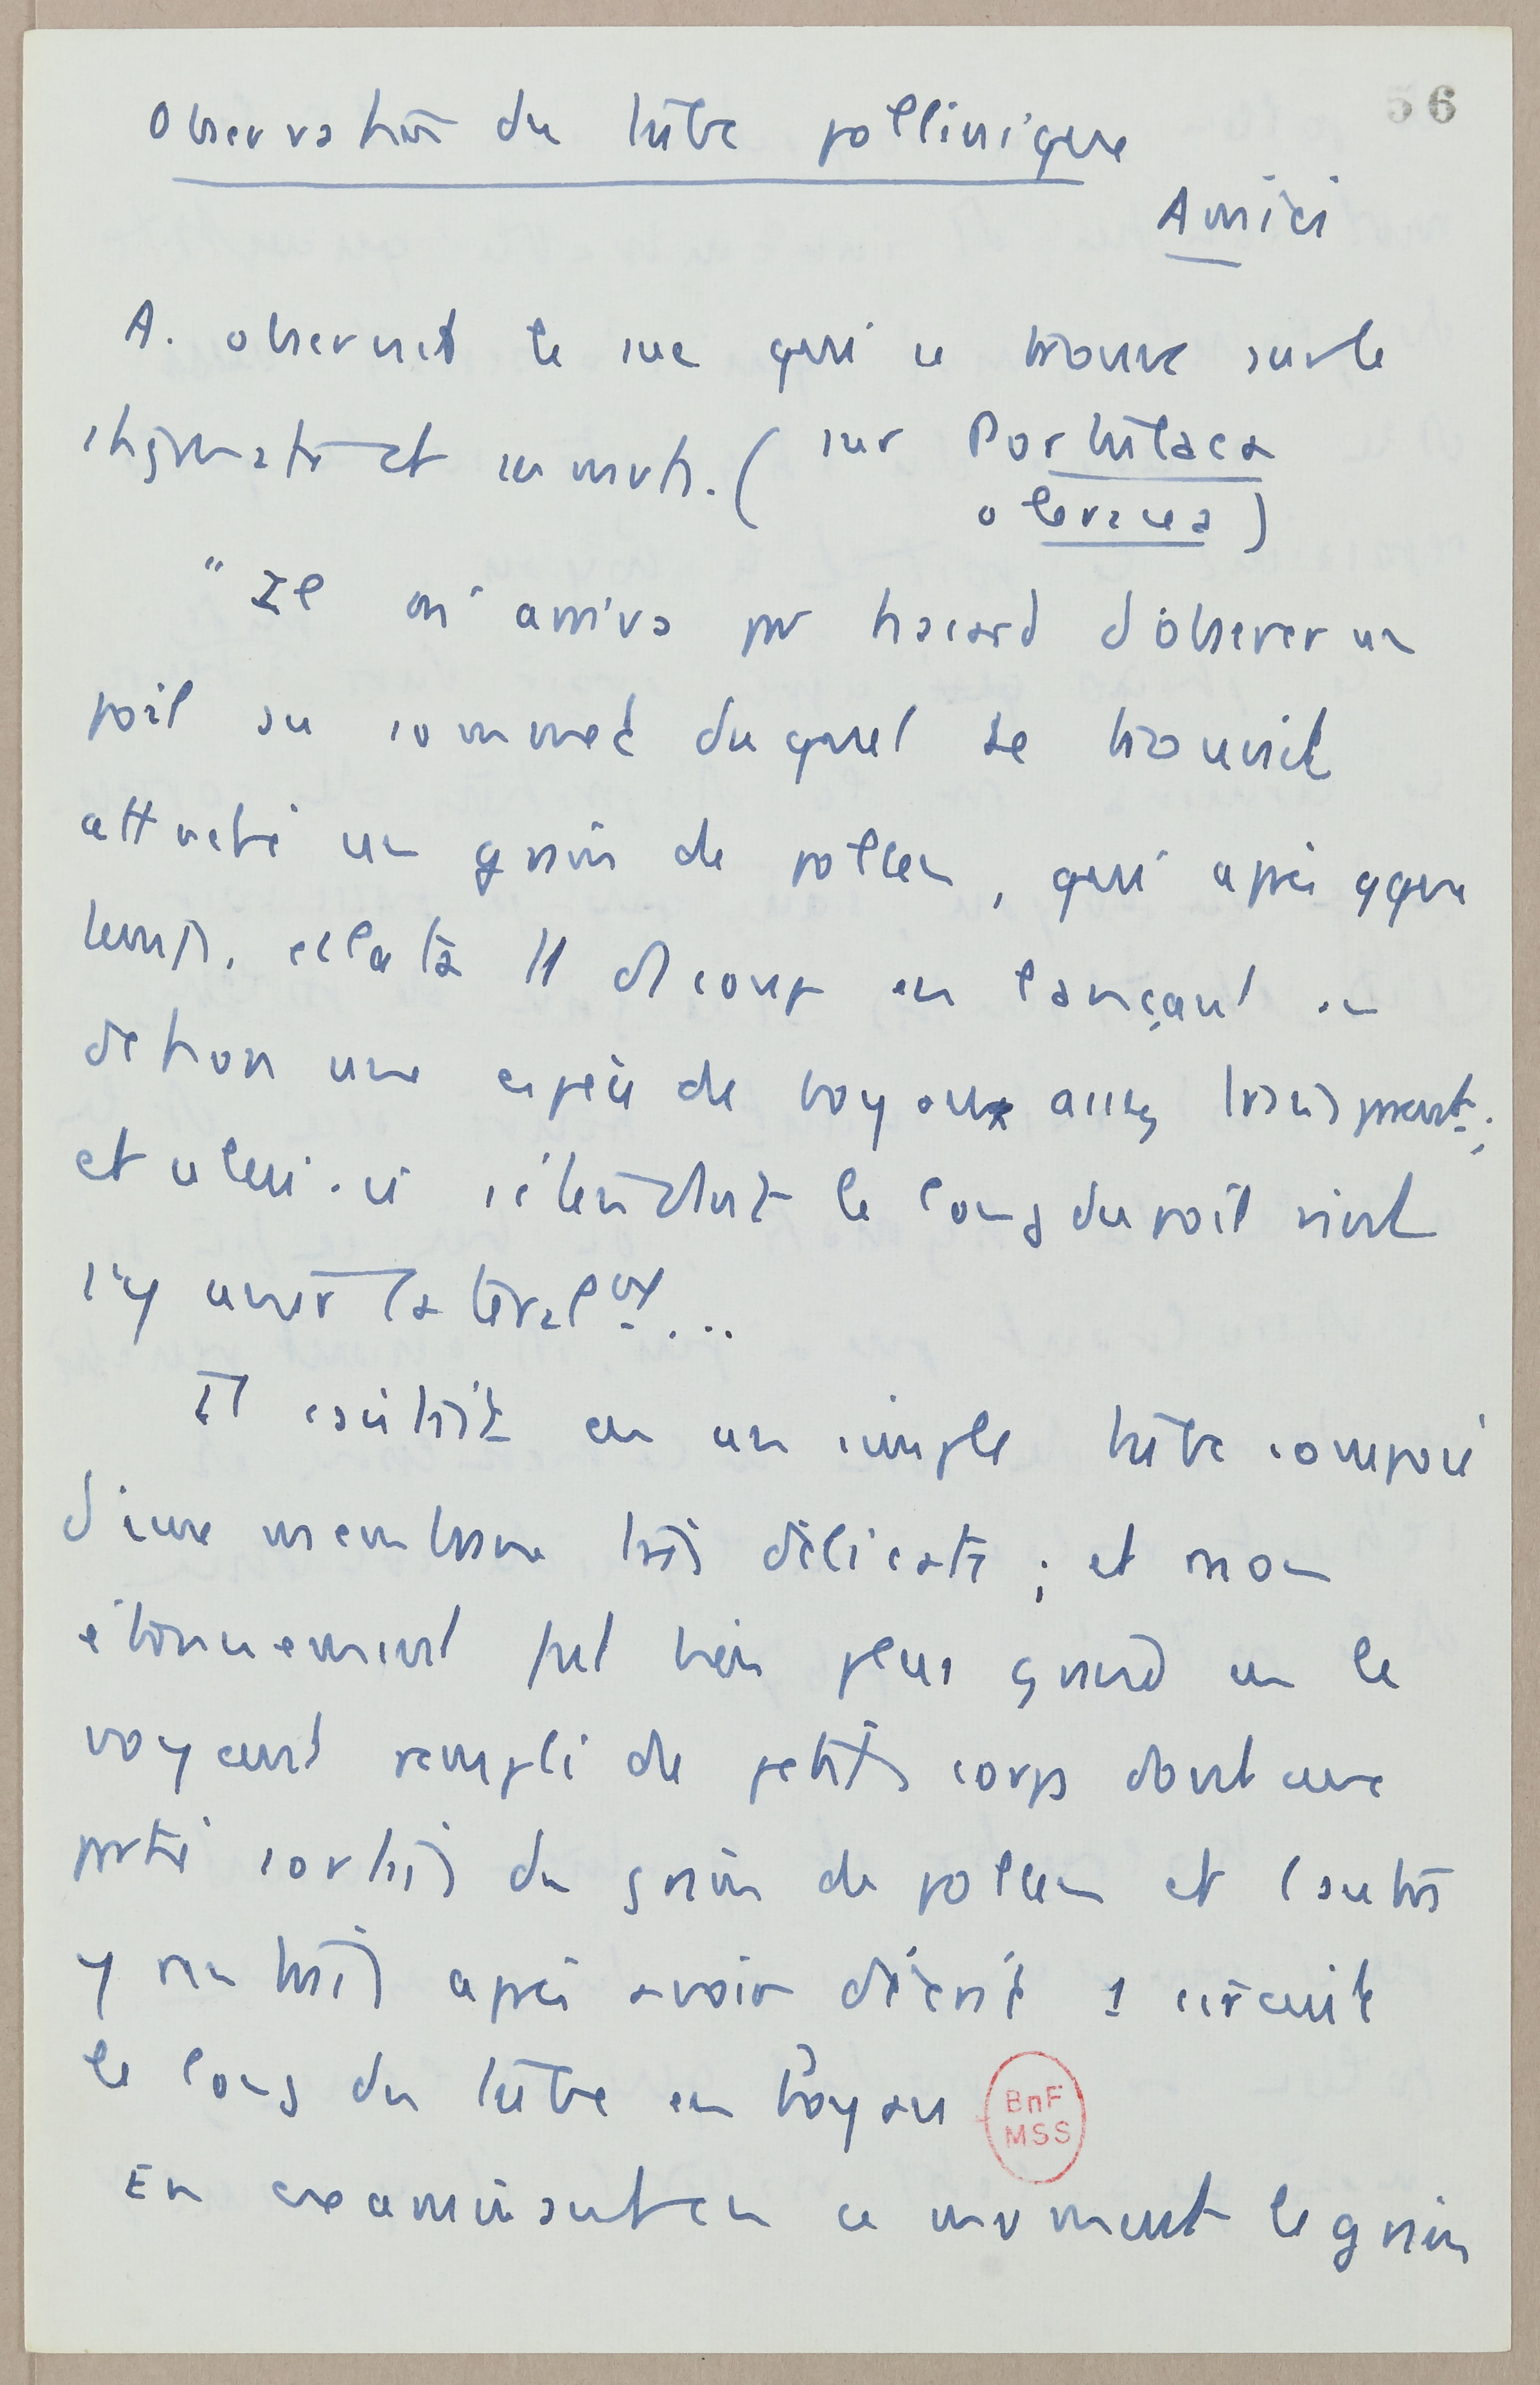 56
Observation du tube pollinique
Amici
A. observait le suc qui se trouve sur le
stigmate et sa mort. ( sur Portulaca
oleracea )
" Il m'arriva par hasard d'observer un
poil au sommet duquel se trouvait
attaché un grain de pollen, qui après qque
temps, éclata tt d'1 coup en lançant au
dehors une espèce de boyau assez transpart.;
et celui-ci s'étendant le long du poil vint
s'y unir latéralmt...
Il consistait en un simple tube composé
d'une membrane très délicate ; et mon
étonnement fut bien plus grand en le
voyant rempli de petits corps dont une
partie sortait du grain de pollen et l'autre
y rentrait après avoir décrit 1 circuit
le long du tube ou boyau
BnF
MSS
En examinant en ce moment le grain